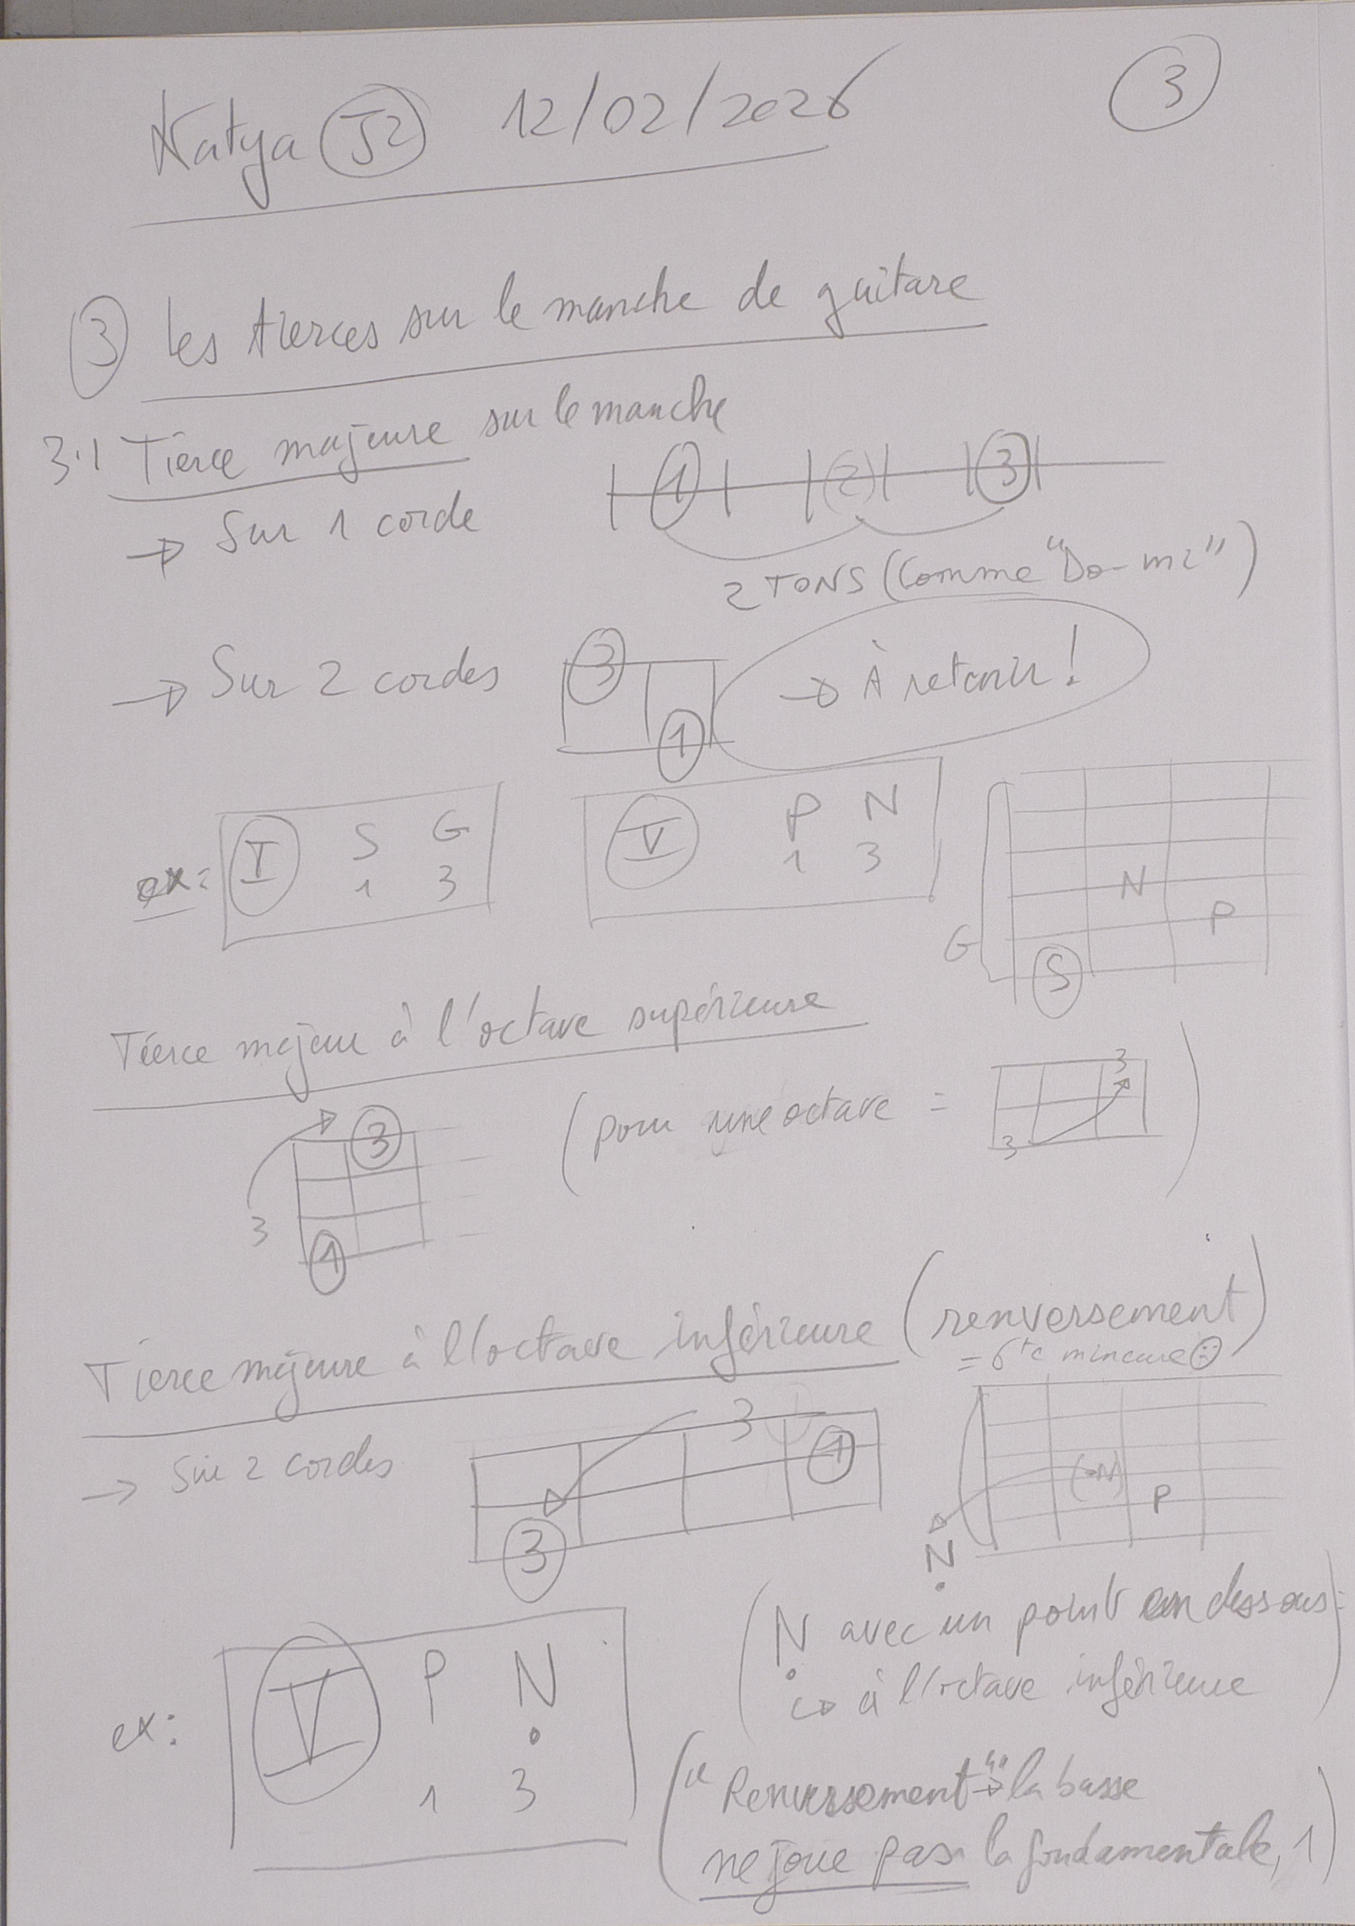 Natya J2 12/02/2026 3
3 Les tierces sur le manche de guitare
3.1 Tierce majeure sur le manche
→ Sur 1 corde 1 (2) 3
2 TONS (Comme "Do-mi")
→ Sur 2 cordes 3 1 → À retenir !
ex: I S G V P N
1 3 1 3
N
P
G S
Tierce majeure à l'octave supérieure
3 3 1
(pour une octave = 3 3 )
Tierce majeure à l'octave inférieure (renversement)
= 6te mineure
→ Sur 2 cordes 3 1 3
(N) P
N
(N avec un point en dessous =
↪ à l'octave inférieure)
ex: V P N
1 3
("Renversement" → la basse
ne joue pas la fondamentale, 1)